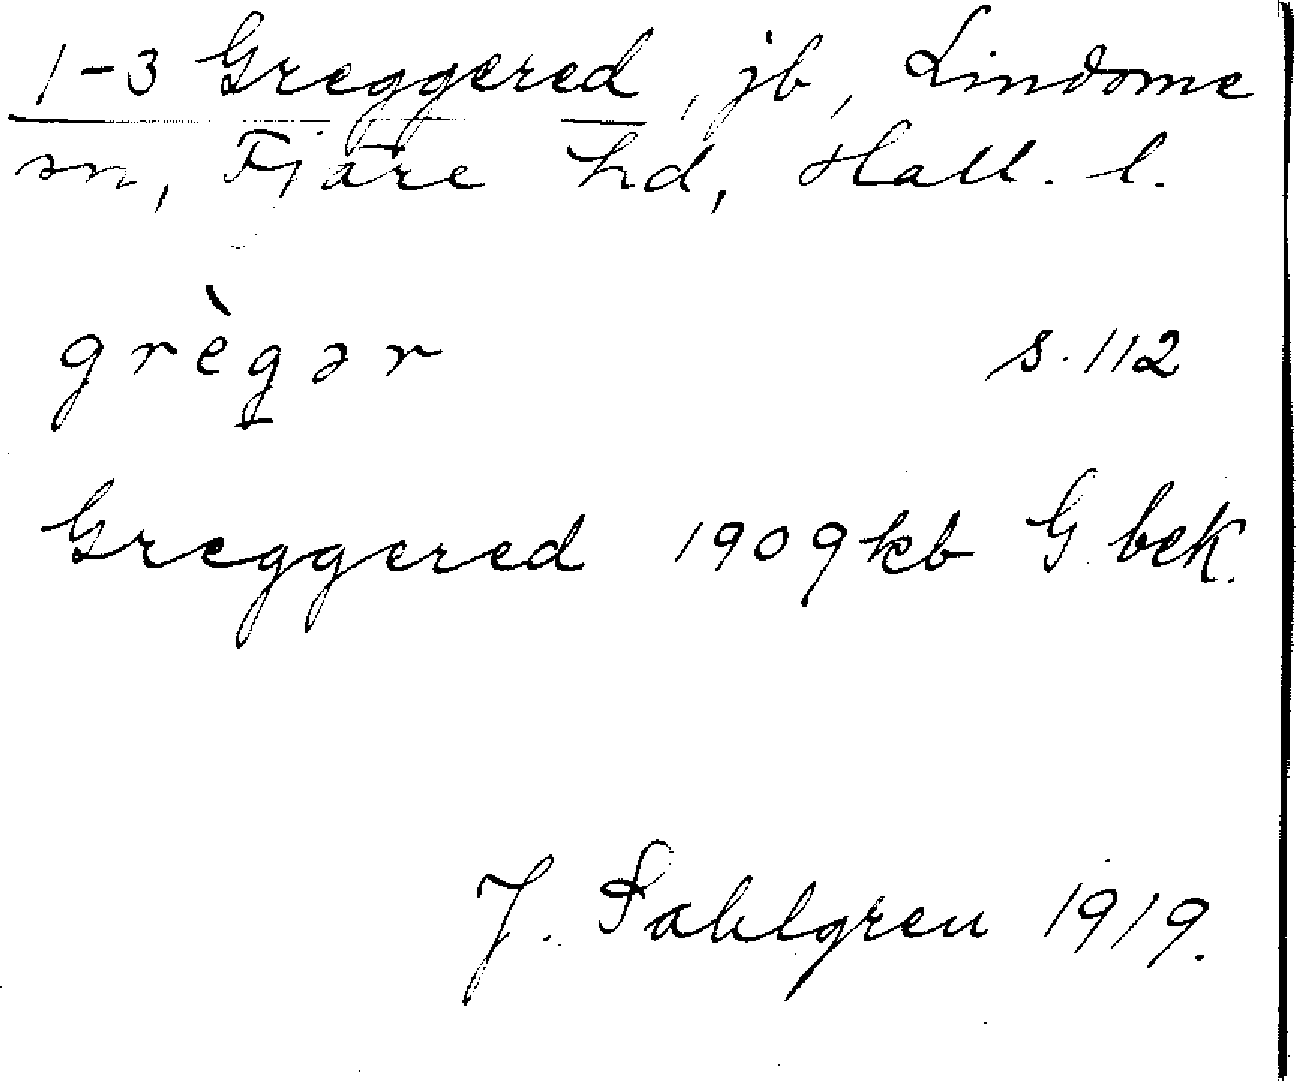 1-3 Greggered, jb, Lindome
sn, Fjäre hd, Hall. l.
grègər s. 112
Greggered 1909 kb G bek.
J. Sahlgren 1919.